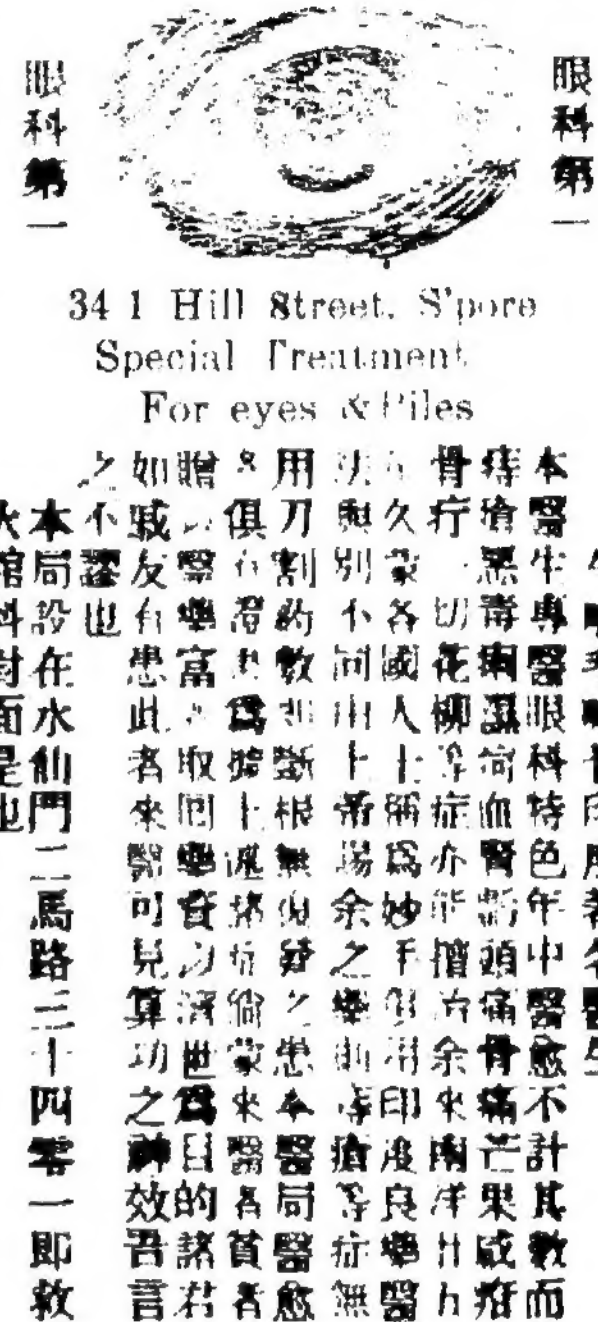 眼科第一
眼科第一
34 1 Hill Street, S'pore
Special Treatment
For eyes & Piles
著名醫生
本醫生專醫眼科特色年中醫愈不計其數而
痔瘡黑毒內濕血腎虧頭痛骨痛芒果疳
骨疔一切花柳等症亦能擅治余來南洋廿五
年久蒙各國人士稱爲妙手俱用印度良藥醫
法與別不同由上帝賜余之藥痔瘡等症無
用刀割葯敷即斷根無復發之患本醫局醫愈
多俱有證書爲據上述諸症倘蒙來醫者貧者
贈以醫藥富者取回藥資以濟世爲目的諸君
如戚友有患此者來醫可見算功之神效吾言
之不謬也
本局設在水仙門二馬路三十四零一即救
火館斜對面是也